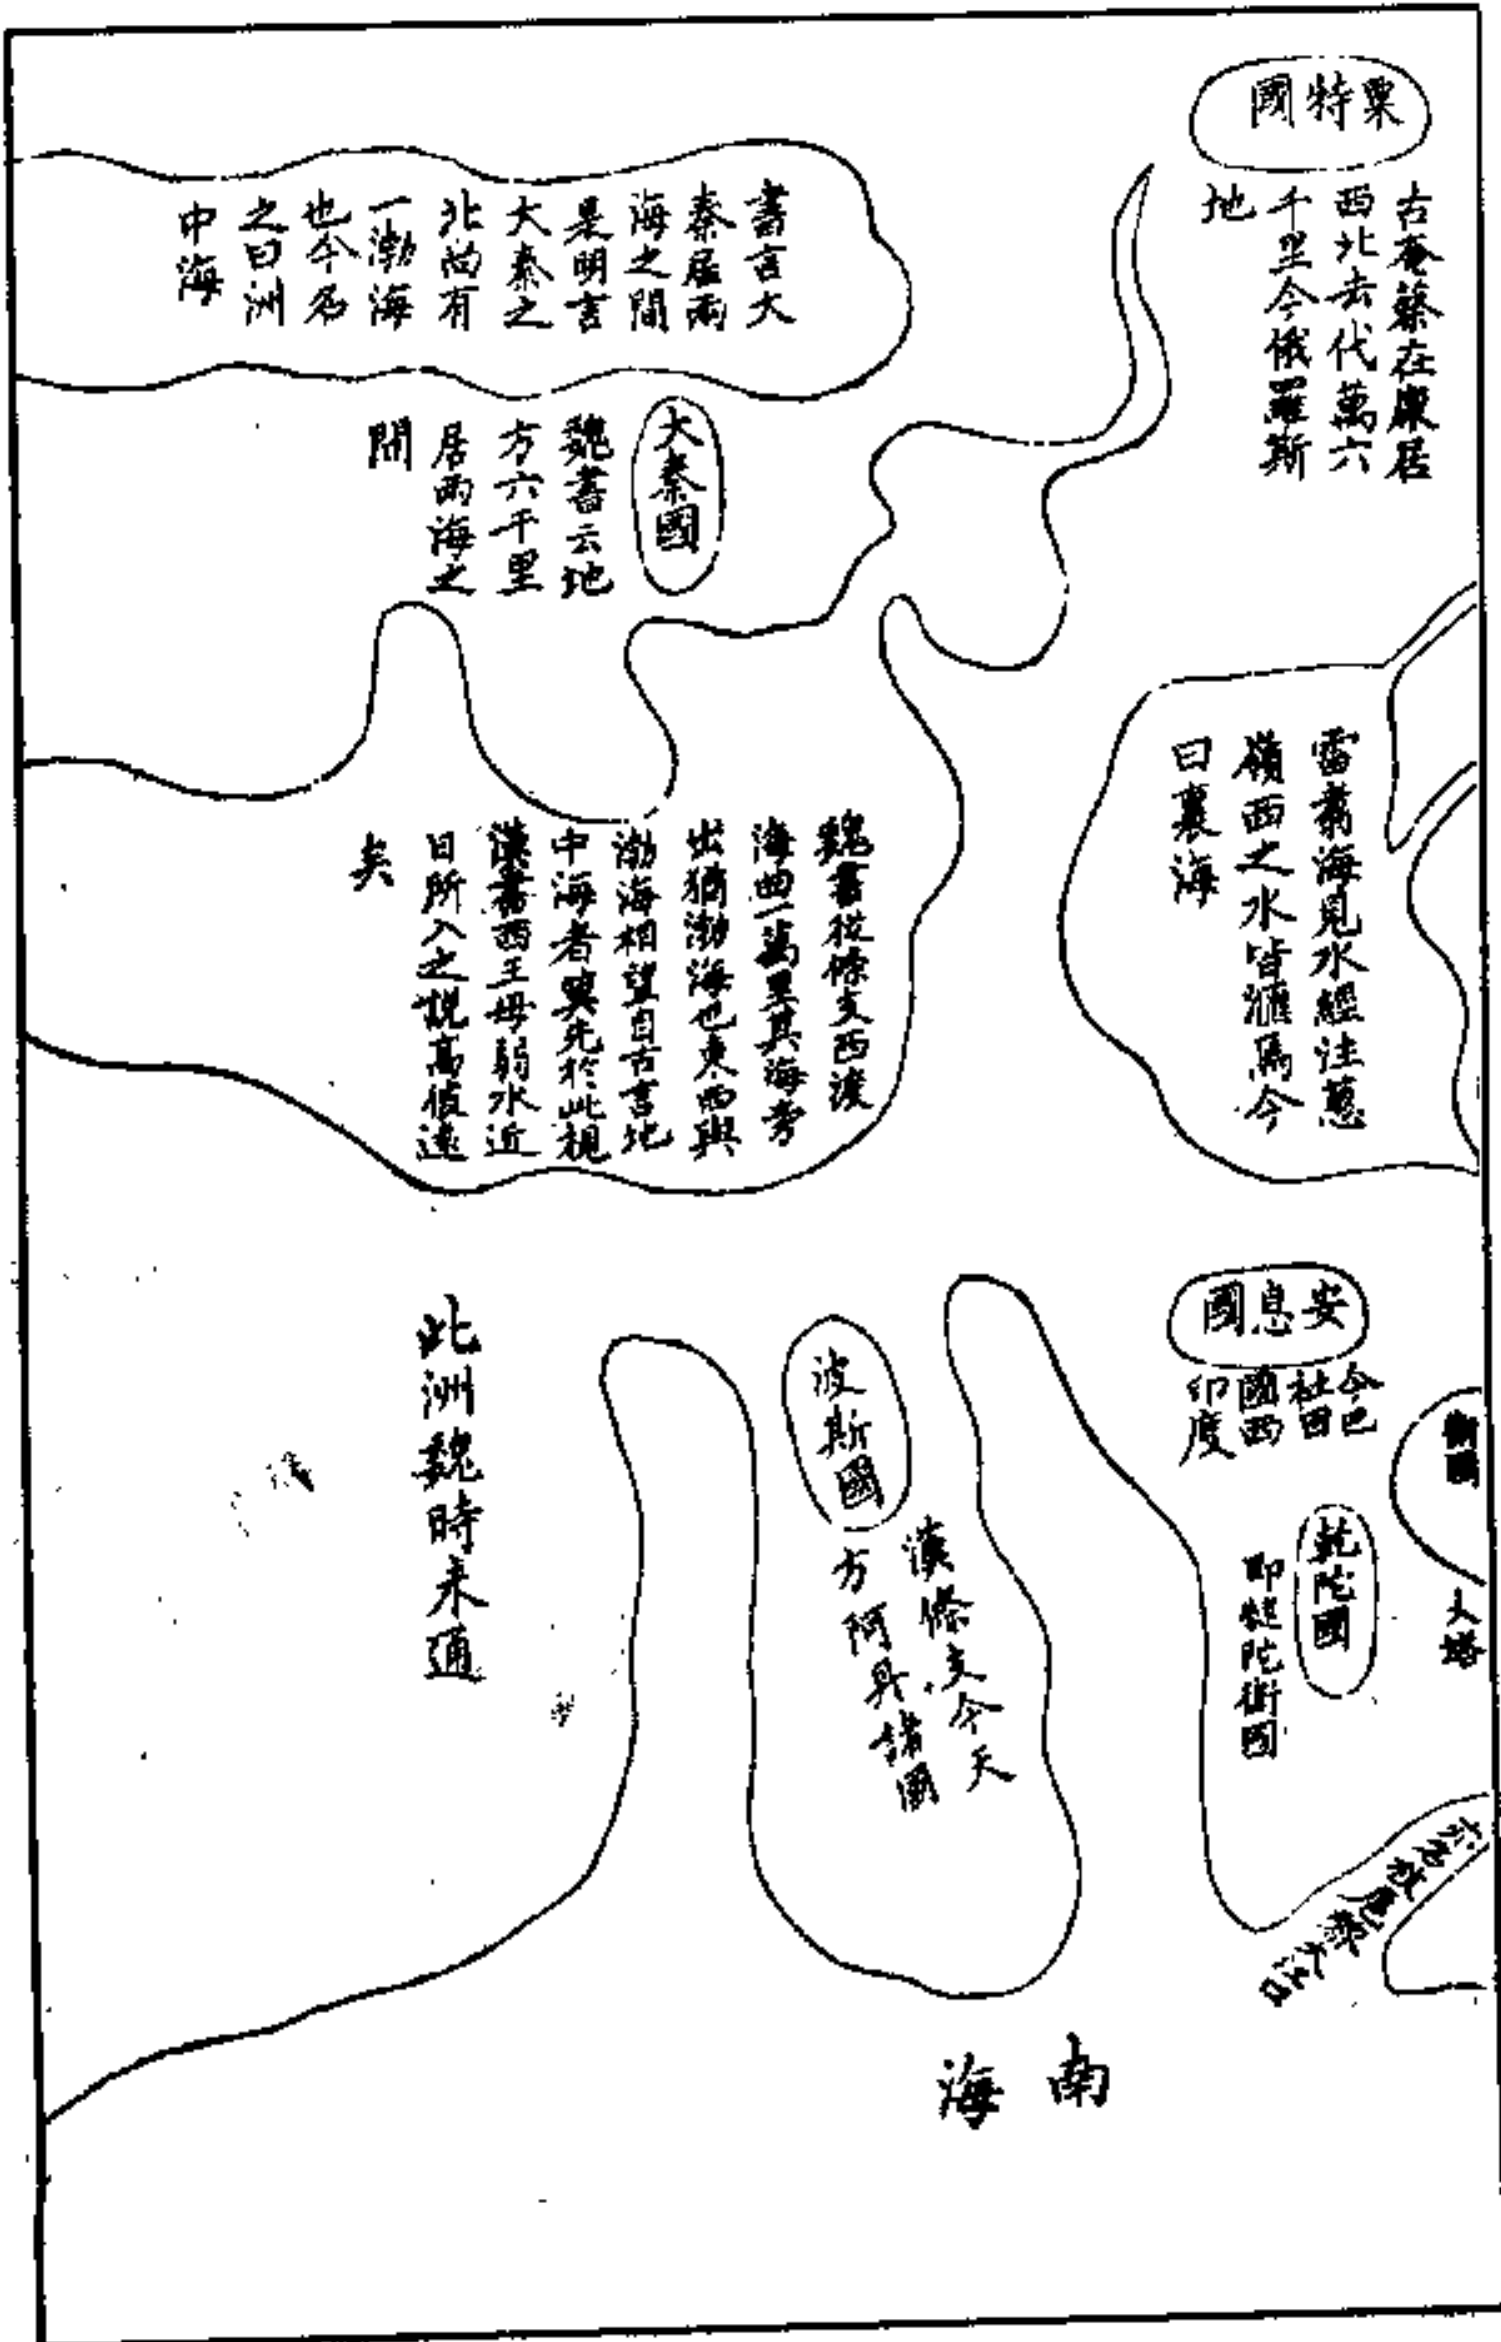 粟特國
古奄蔡在康居
西北去代萬六
千里今俄羅斯
地
書言大
秦居兩
海之間
是明言
大秦之
北尚有
一渤海
也今名
之曰洲
中海
大秦國
魏書云地
方六千里
居兩海之
間
雷翥海見水經注蔥
嶺西之水皆滙焉今
曰裏海
魏書從條支西渡
海曲一萬里其海旁
出猶渤海也東西與
渤海相望自古言地
中海者莫先於此視
漢書西王母弱水近
日所入之說高值遠
矣
安息國
今巴
社西
國西
印度
波斯國
漢條支今天
方阿丹諸國
此洲魏時未通
乾陀國
即健陀衛國
南海